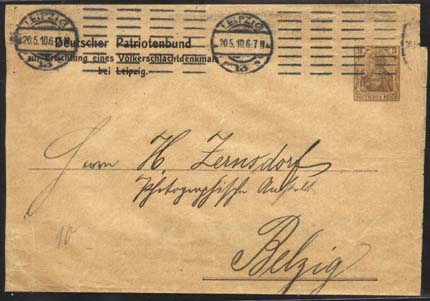 LEIPZIG
20.5.10.6-7 N
13
LEIPZIG
20.5.10.6-7 N
13
Deutscher Patriotenbund
zur Errichtung eines Völkerschlachtdenkmals
bei Leipzig.
3 3
DEUTSCHES REICH
Herrn H. Zernsdorf
Photographische Anstalt
Belzig
10